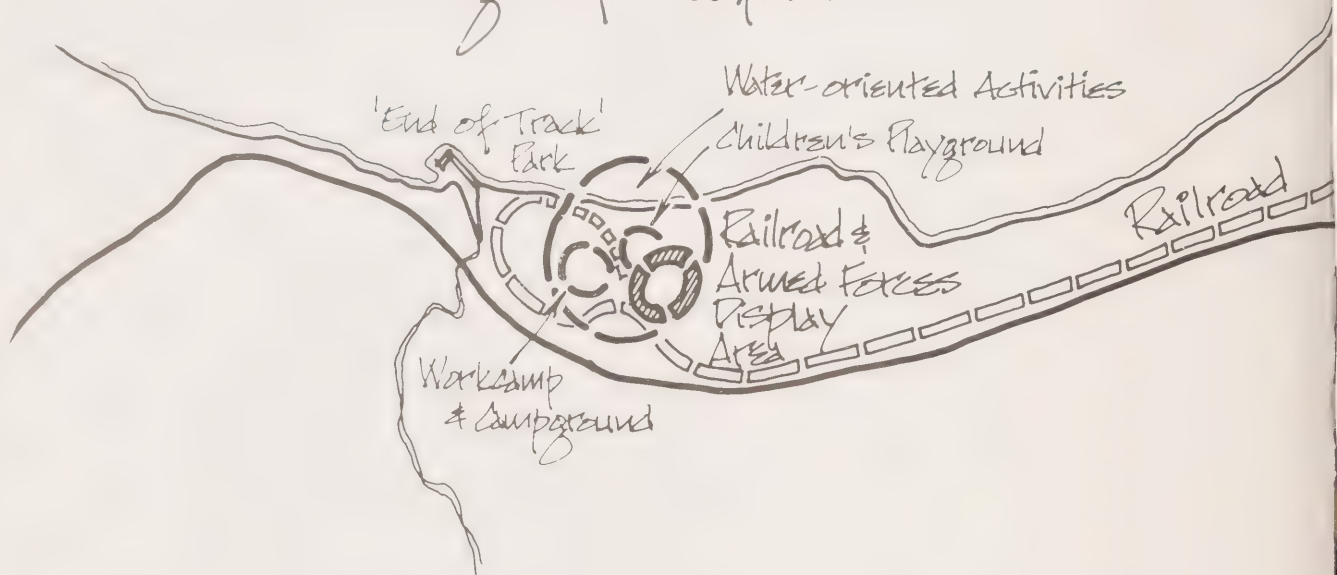 'End of Track'
Park
Water-oriented Activities
Children's Playground
Railroad &
Armed Forces
Display
Area
Railroad
Workcamp
& Campground